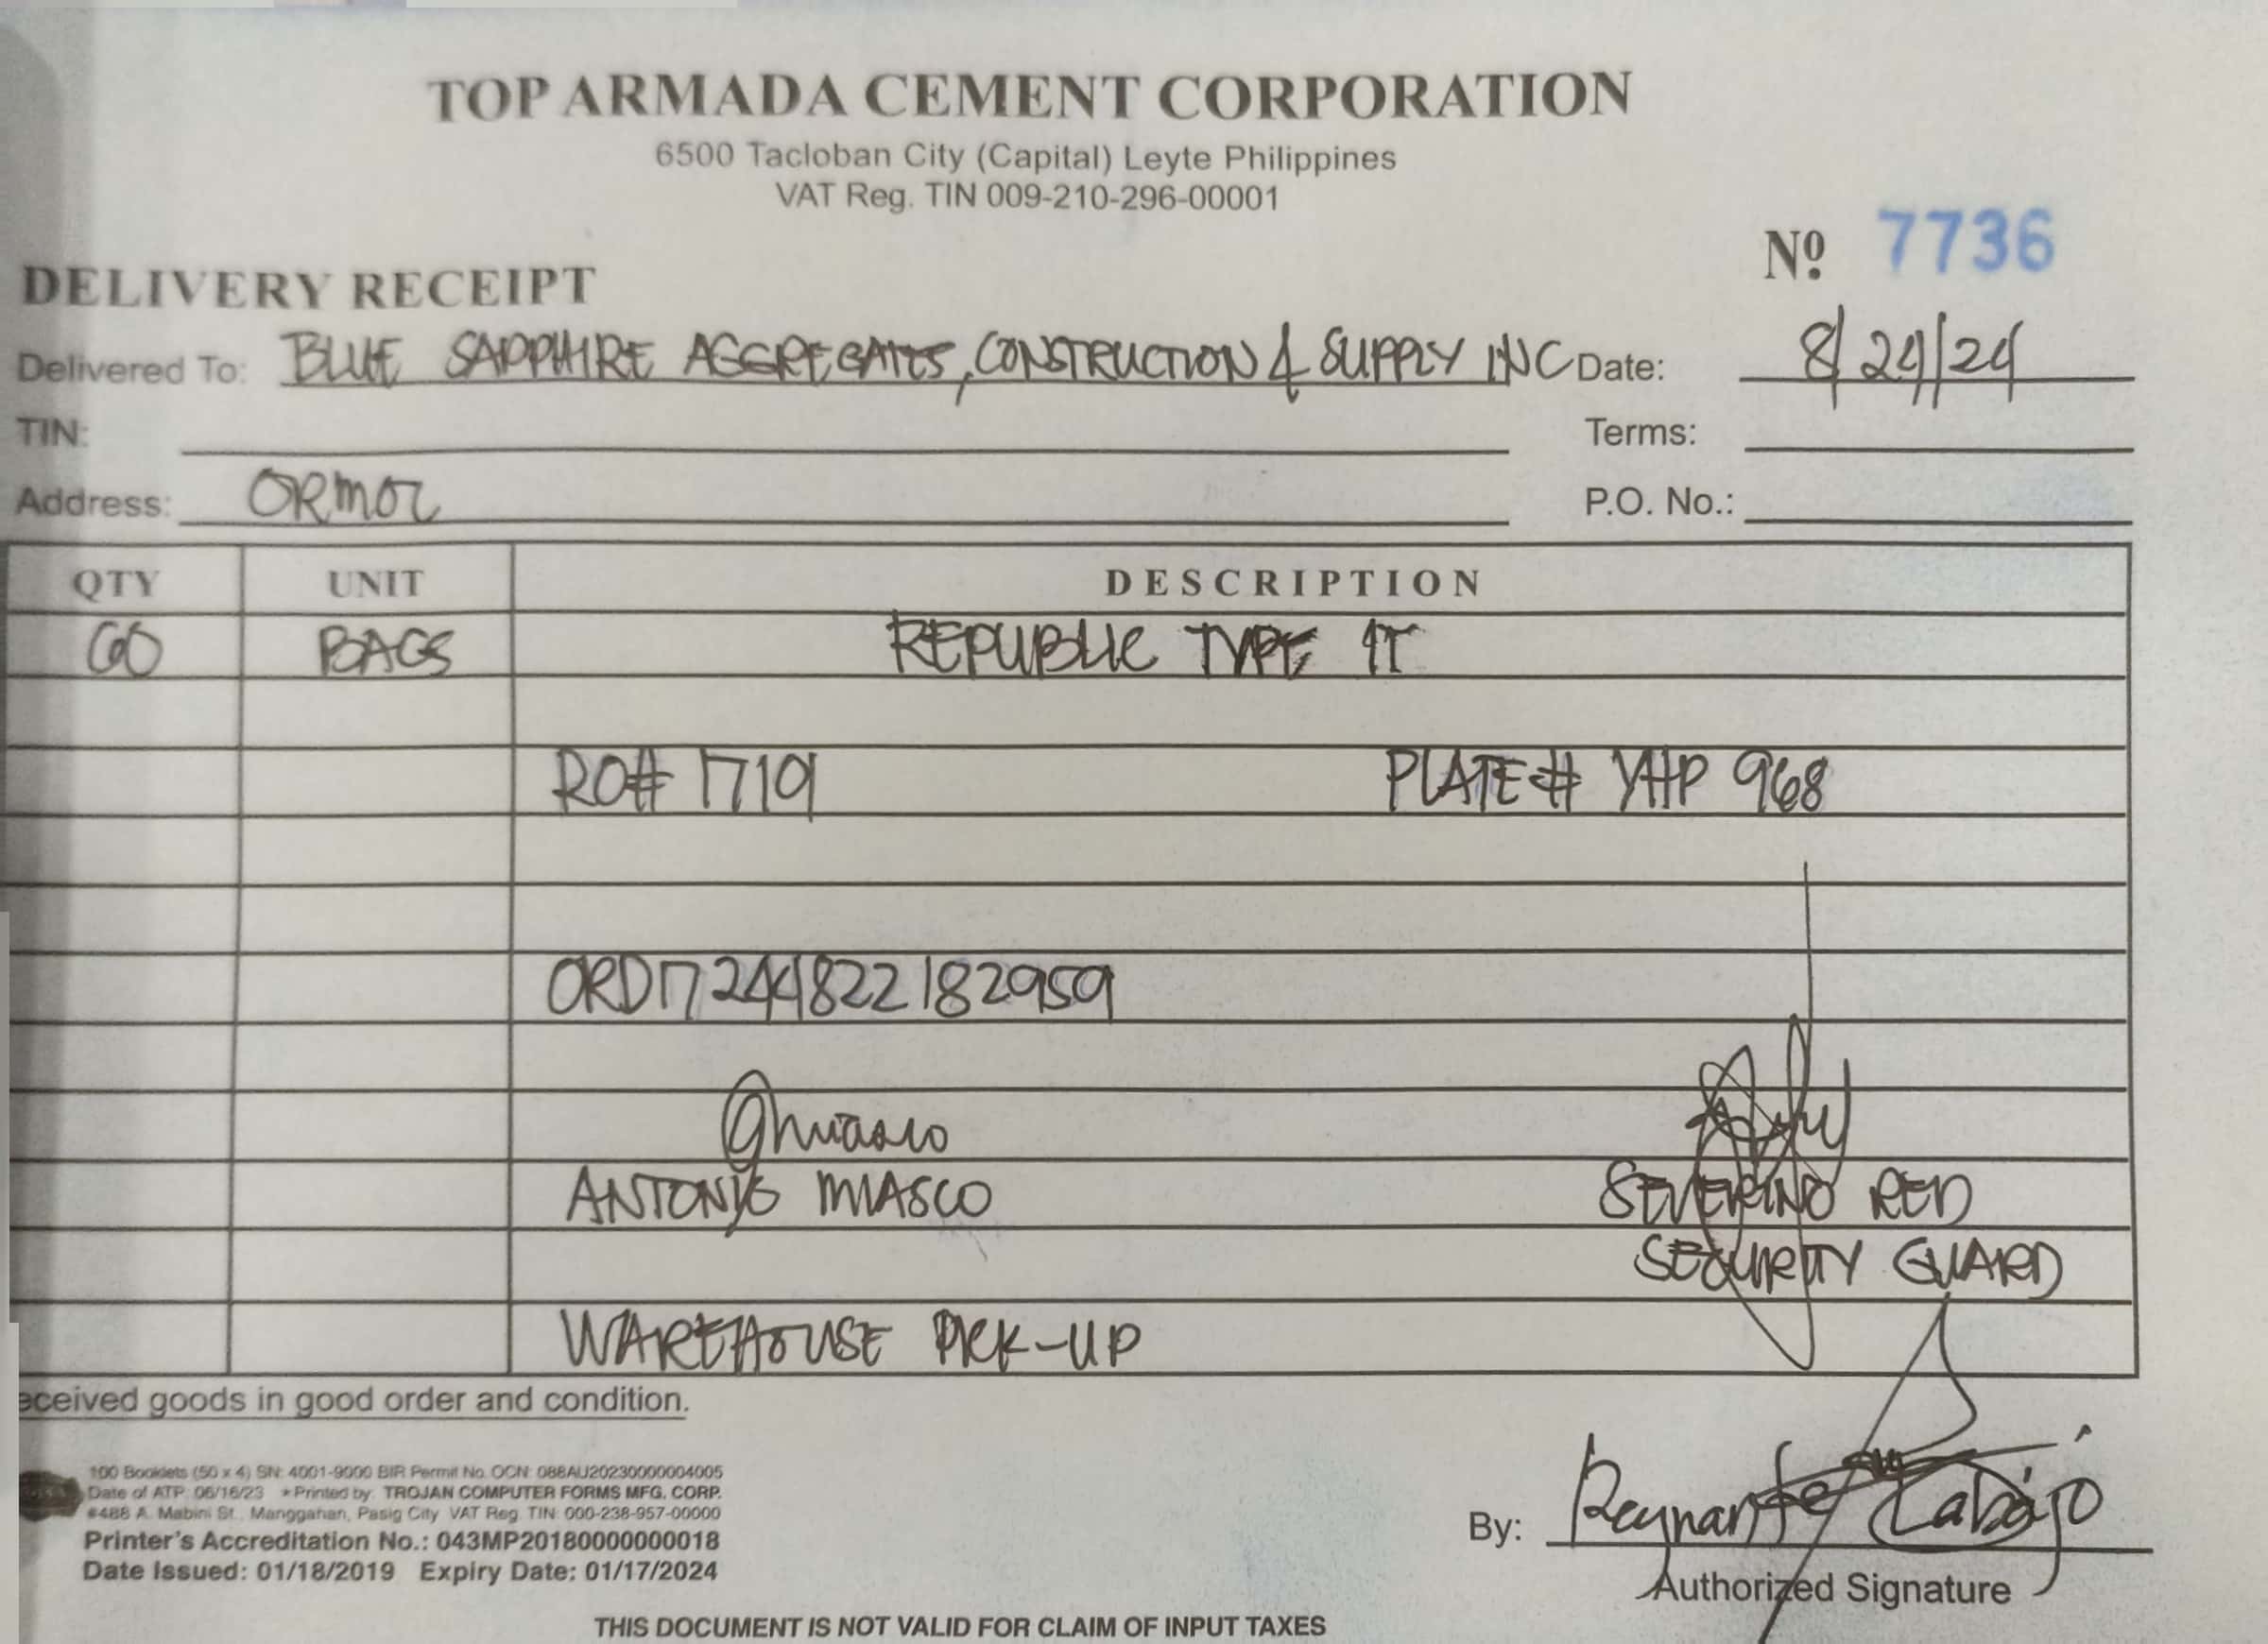 TOP ARMADA CEMENT CORPORATION
6500 Tacloban City (Capital) Leyte Philippines
VAT Reg. TIN 009-210-296-00001
Nº 7736
DELIVERY RECEIPT
Delivered To: BLUE SAPPHIRE AGGREGATES, CONSTRUCTION & SUPPLY INC Date: 8/24/24
TIN: Terms:
Address: ORMOC P.O. No.:
QTY UNIT DESCRIPTION
60 BAGS REPUBLIC TYPE 1T
RO# 1719 PLATE# YHP 968
ORD1724482218 2959
ANTONIO MIASCO SEVERINO RED
SECURITY GUARD
WAREHOUSE PICK-UP
eceived goods in good order and condition.
100 Booklets (50 x 4) SN: 4001-9000 BIR Permit No. OCN: 088AU20230000004005
Date of ATP: 06/16/23 * Printed by: TROJAN COMPUTER FORMS MFG. CORP.
#488 A. Mabini St., Manggahan, Pasig City VAT Reg. TIN: 000-238-957-00000
Printer's Accreditation No.: 043MP20180000000018
Date Issued: 01/18/2019 Expiry Date: 01/17/2024
By: Reynante Labajo
Authorized Signature
THIS DOCUMENT IS NOT VALID FOR CLAIM OF INPUT TAXES